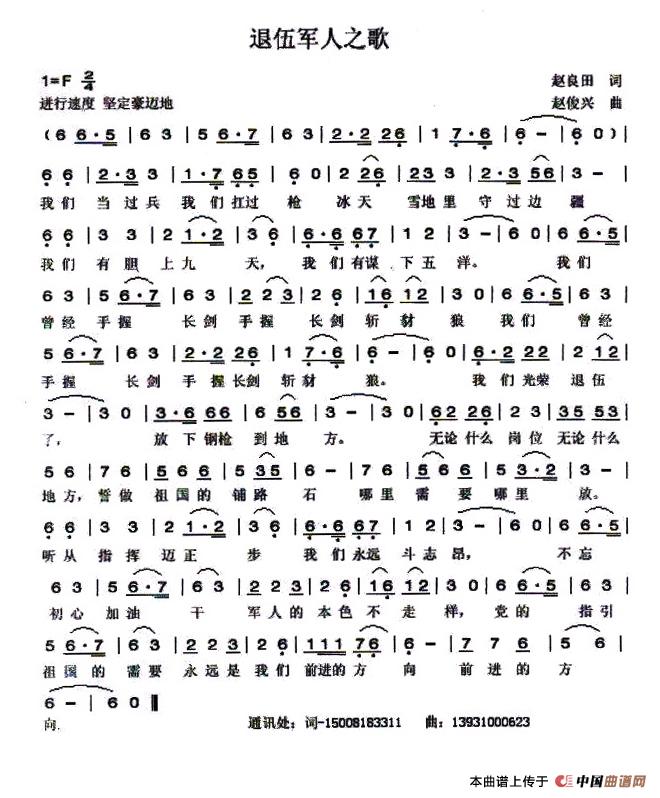 退伍军人之歌
1=F 2/4
赵良田 词
进行速度 坚定豪迈地
赵俊兴 曲
(6 6·5 | 6 3 | 5 6·5 | 6 3 | 2·2 26 | 1 7·6 | 6 - | 6 0) |
6 6 | 2·3 3 | 1·7 65 | 6 0 | 2 26 | 23 3 | 2·3 56 | 3 - |
我们 当过兵 我们扛过 枪 冰天 雪地里 守过边 疆
6 6 | 3 3 | 2 1·2 | 3 6 | 6·6 67 | 1 2 | 3 - | 6 0 | 6 6·5 |
我们 有胆 上九 天, 我们有谋 下五 洋。 我们
6 3 | 5 6·7 | 6 3 | 2 2 3 | 2 6 | 16 12 | 3 0 | 6 0 | 6 6·5 |
曾经 手握 长剑 手握 长剑 斩豺 狼 我们 曾经
5 6·7 | 6 3 | 2·2 26 | 1 7·6 | 6 - | 6 0 | 6·6 22 | 2 12 |
手握 长剑 手握长剑 斩豺 狼。 我们光荣 退伍
3 - | 3 0 | 3·6 66 | 6 56 | 3 - | 3 0 | 62 26 | 2 3 | 35 53 |
了, 放下钢枪 到地 方。 无论什么 岗位 无论什么
5 6 | 7 6 | 6 5 6 | 5 35 | 6 - | 7 6 | 5 6 6 | 5 3·2 | 3 - |
地方, 誓做 祖国的 铺路 石 哪里 需要 哪里 放。
6 6 | 3 3 | 2 1·2 | 3 6 | 6·6 67 | 1 2 | 3 - | 3 0 | 6 6·5 |
听从 指挥 迈正 步 我们永远 斗志 昂, 不忘
6 3 | 5 6·7 | 6 3 | 2 2 3 | 2 6 | 16 12 | 3 0 | 6 6·5 | 6 3 |
初心 加油 干 军人的 本色 不走 样, 党的 指引
5 6·7 | 6 3 | 2 2 3 | 2 6 | 111 76 | 6 - | 7 6 | 5 6 |
祖国 的 需要 永远是 我们 前进的方 向 前进 的方
6 - | 6 0 ‖
向.
通讯处: 词-15008183311 曲: 13931000623
本曲谱上传于 中国曲谱网